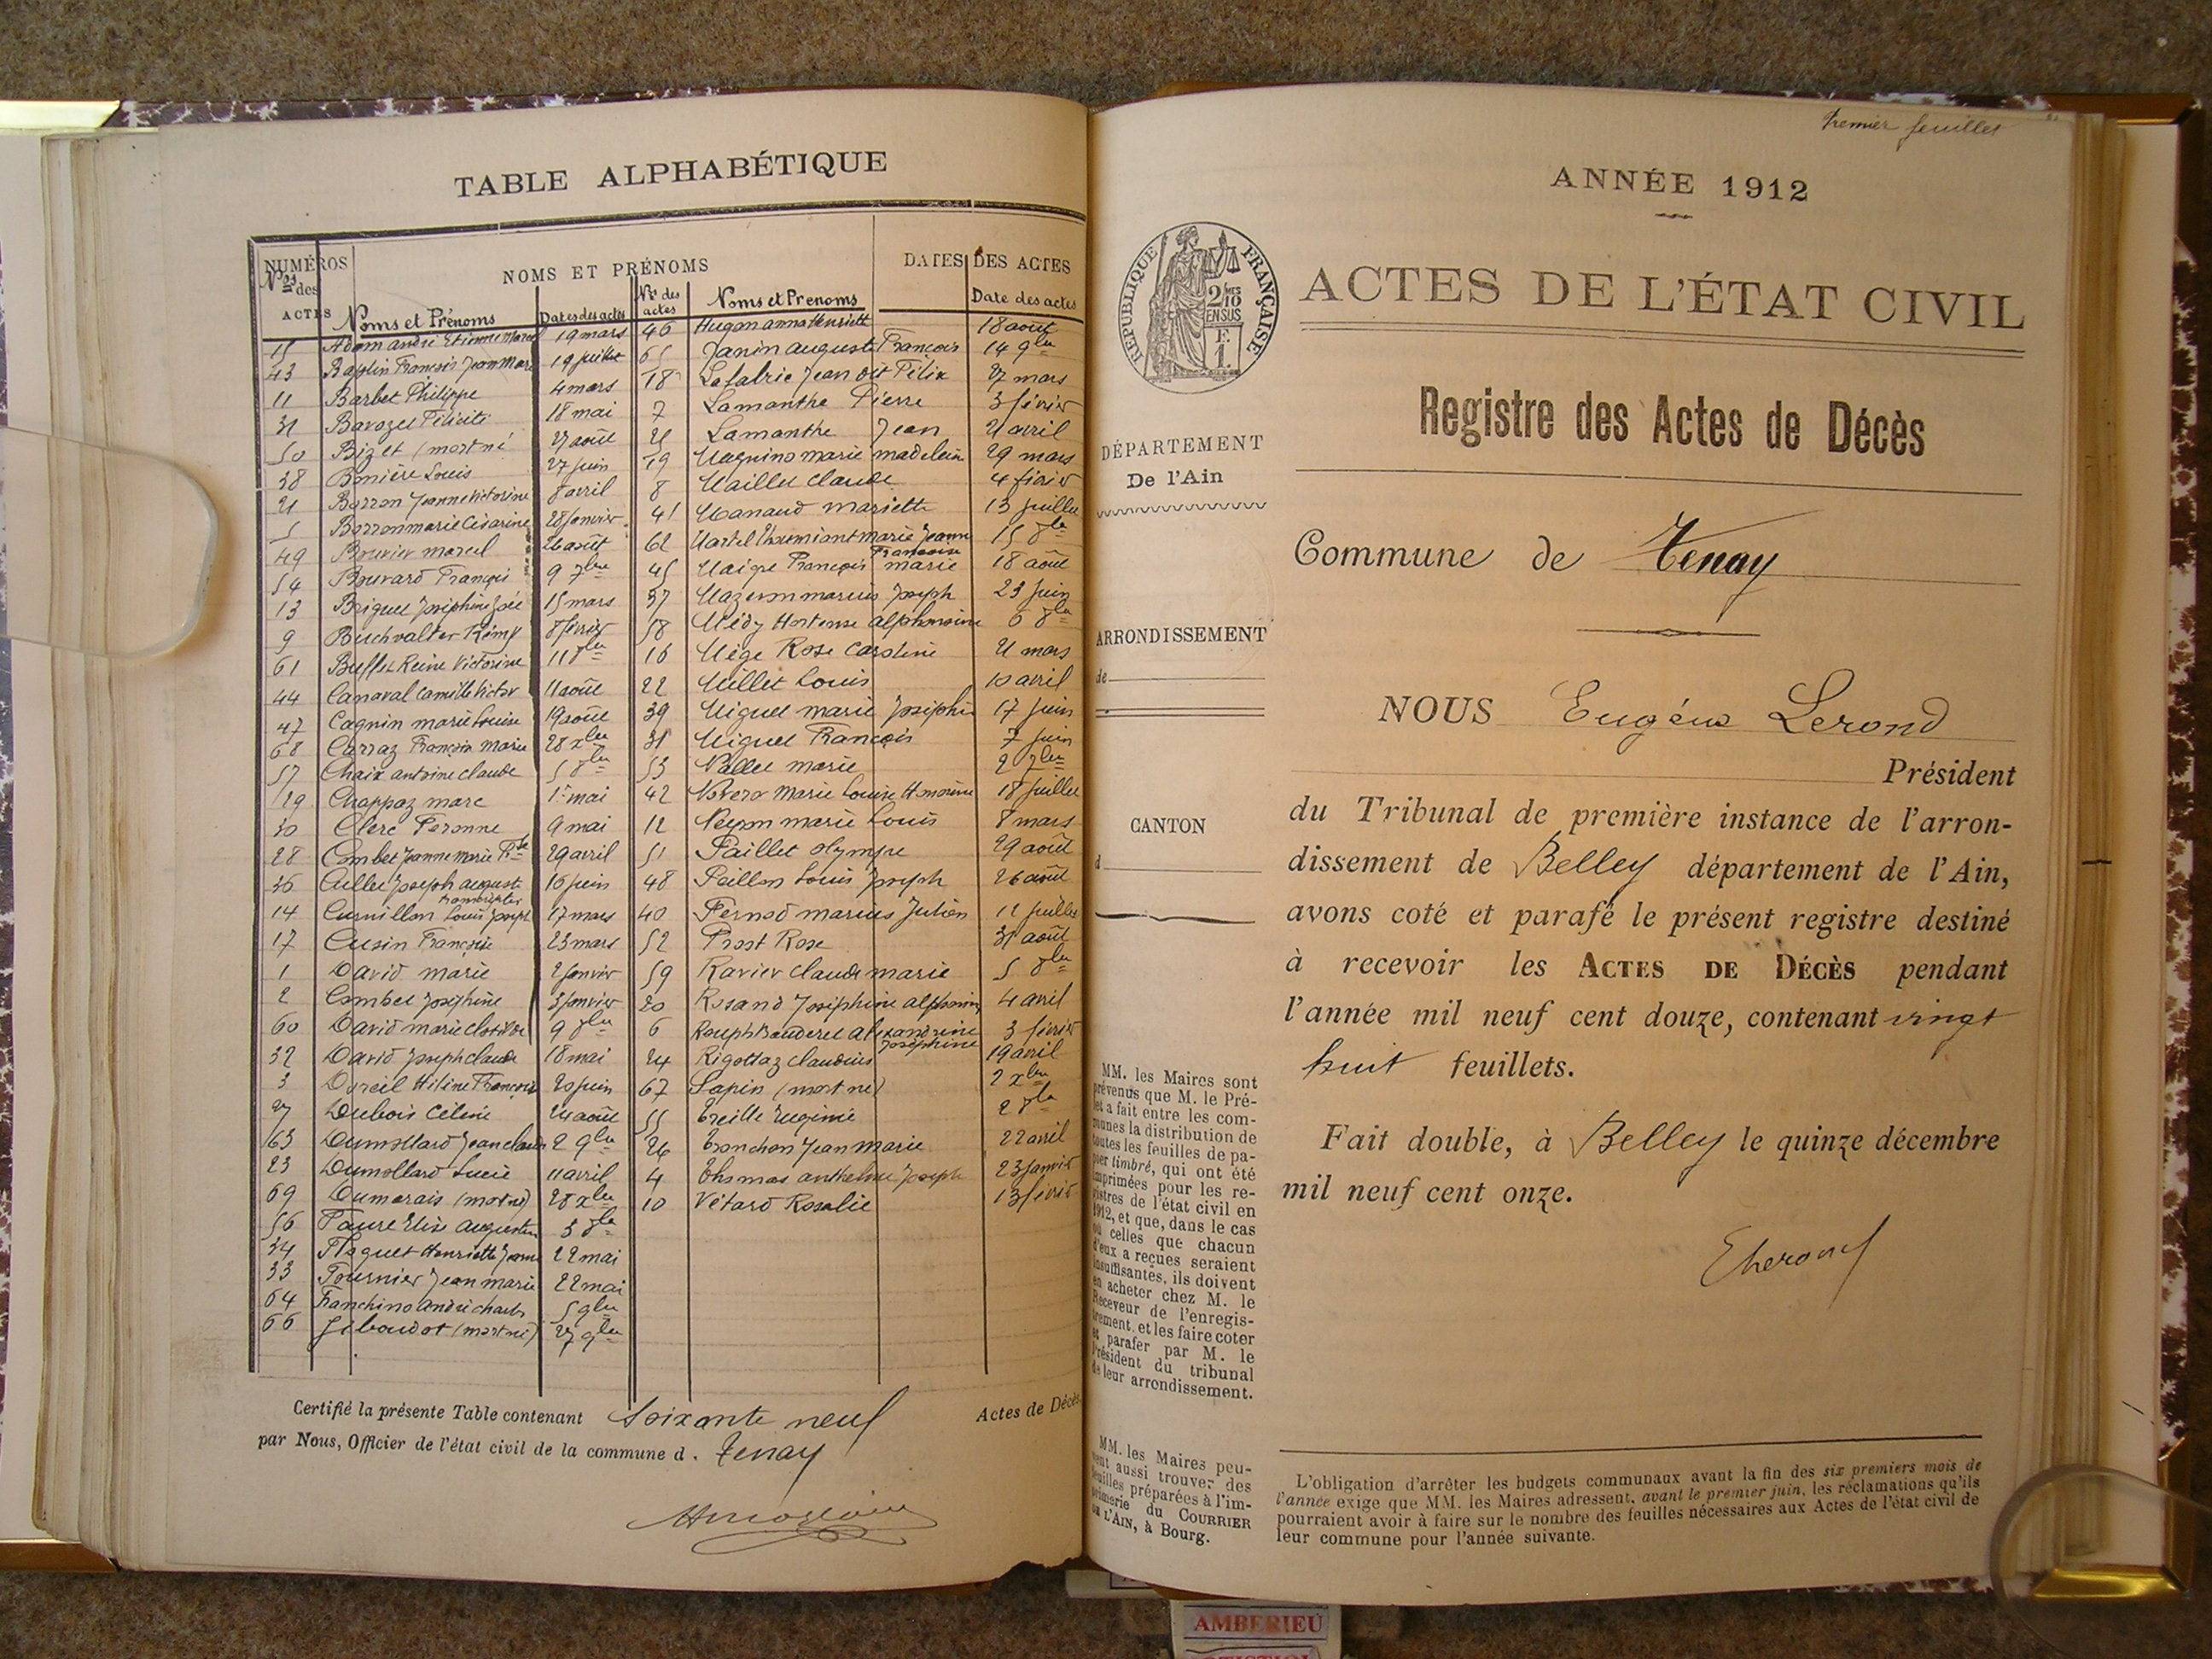 TABLE ALPHABÉTIQUE
NUMÉROS
Nos des
ACTES
NOMS ET PRÉNOMS
DATES DES ACTES
Noms et Prénoms Dates des actes Nos des actes Noms et Prenoms Date des actes
15 Adam andré Etienne Marcel 19 mars 46 Hugon anna Henriette 18 août
43 François Jean Marie 19 juillet 65 Janin auguste François 14 9bre
11 Barbet Philippe 4 mars 18 Lafabrie Jean dit Félix 27 mars
31 Félicité 18 mai 7 Lamanthe Pierre 3 février
50 Bizet (mort né 27 août 25 Lamanthe Jean 21 avril
38 Bonière Louis 27 juin 19 Magnino marie madeleine 29 mars
21 Borron Jeanne Victorine 8 avril 8 Maillet Claude 4 février
5 Borron marie Césarine 28 janvier 41 Manaud mariette 13 juillet
49 Bouvier marcel 26 août 62 marie Jeanne Françoise 15 8bre
54 Bouvard François 9 7bre 45 Maigre François marie 18 août
13 Briguet Joséphine Zoé 15 mars 37 marius Joseph 23 juin
9 Buchvalter Rémy 8 février 58 Médy Hortense alphonsine 6 8bre
61 Buffet Reine Victorine 11 8bre 16 Mège Rose Caroline 21 mars
44 Canaval Camille Victor 11 août 22 Millet Louis 10 avril
47 Cagnin marie Louise 19 août 39 Miguet marie Joséphine 17 juin
68 Carraz François Marie 28 xbre 35 Miguet François 7 juin
57 Chaix antoine claude 5 8bre 53 Nallet marie 2 7bre
29 Chappaz marc 1er mai 42 Novero Marie Louise Honorine 18 juillet
30 Clerc Peronne 9 mai 12 Neyron marie Louis 8 mars
28 Combet Jeanne Marie 29 avril 51 Paillet olympe 29 août
36 Cullet Joseph auguste 16 juin 48 Peillon Louis Joseph 26 août
14 Curvillon Louis Joseph 17 mars 40 Pernod marius Julien 12 juillet
17 Cusin Françoise 23 mars 52 Prost Rose 31 août
1 David marie 2 janvier 59 Ravier claude marie 5 8bre
2 Combet Joséphine 3 janvier 20 Rosand Joséphine alphonsine 4 avril
60 David marie clotilde 9 8bre 6 Rouph Bauderet alexandrine Joséphine 3 février
32 David Joseph claude 18 mai 24 Rigottaz claudius 19 avril
3 Hélène Françoise 20 juin 67 Sapin (mort né) 2 xbre
27 Dubois Céline 24 août 55 Treille Eugénie 2 8bre
63 Dumollard Jean claude 2 9bre 26 Tronchon Jean marie 22 avril
23 Dumollard Lucie 11 avril 4 Thomas anthelme Joseph 23 janvier
69 Dumarais (mort né) 28 xbre 10 Vétard Rosalie 13 février
56 Faure Elise augustine 3 8bre
34 Flaquet Henriette Jeanne 22 mai
33 Fournier Jean marie 22 mai
64 Franchino andré charles 5 9bre
66 Giboudot (mort né) 27 9bre
Certifié la présente Table contenant Soixante neuf Actes de Décès
par Nous, Officier de l'état civil de la commune d. Tenay
Premier feuillet
ANNÉE 1912
RÉPUBLIQUE FRANÇAISE
2/10 EN SUS
F.
1.
ACTES DE L'ÉTAT CIVIL
Registre des Actes de Décès
DÉPARTEMENT
De l'Ain
Commune de Tenay
ARRONDISSEMENT
de
CANTON
d
NOUS Eugène Lerond
Président
du Tribunal de première instance de l'arron-
dissement de Belley département de l'Ain,
avons coté et parafé le présent registre destiné
à recevoir les ACTES DE DÉCÈS pendant
l'année mil neuf cent douze, contenant vingt
huit feuillets.
Fait double, à Belley le quinze décembre
mil neuf cent onze.
ELerond
MM. les Maires sont
prévenus que M. le Pré-
fet a fait entre les com-
munes la distribution de
toutes les feuilles de pa-
pier timbré, qui ont été
imprimées pour les re-
gistres de l'état civil en
1912, et que, dans le cas
où celles que chacun
d'eux a reçues seraient
insuffisantes, ils doivent
en acheter chez M. le
Receveur de l'enregis-
trement, et les faire coter
et parafer par M. le
Président du tribunal
de leur arrondissement.
MM. les Maires peu-
vent aussi trouver des
feuilles préparées à l'im-
primerie du COURRIER
DE L'AIN, à Bourg.
L'obligation d'arrêter les budgets communaux avant la fin des six premiers mois de
l'année exige que MM. les Maires adressent, avant le premier juin, les réclamations qu'ils
pourraient avoir à faire sur le nombre des feuilles nécessaires aux Actes de l'état civil de
leur commune pour l'année suivante.
AMBERIEU